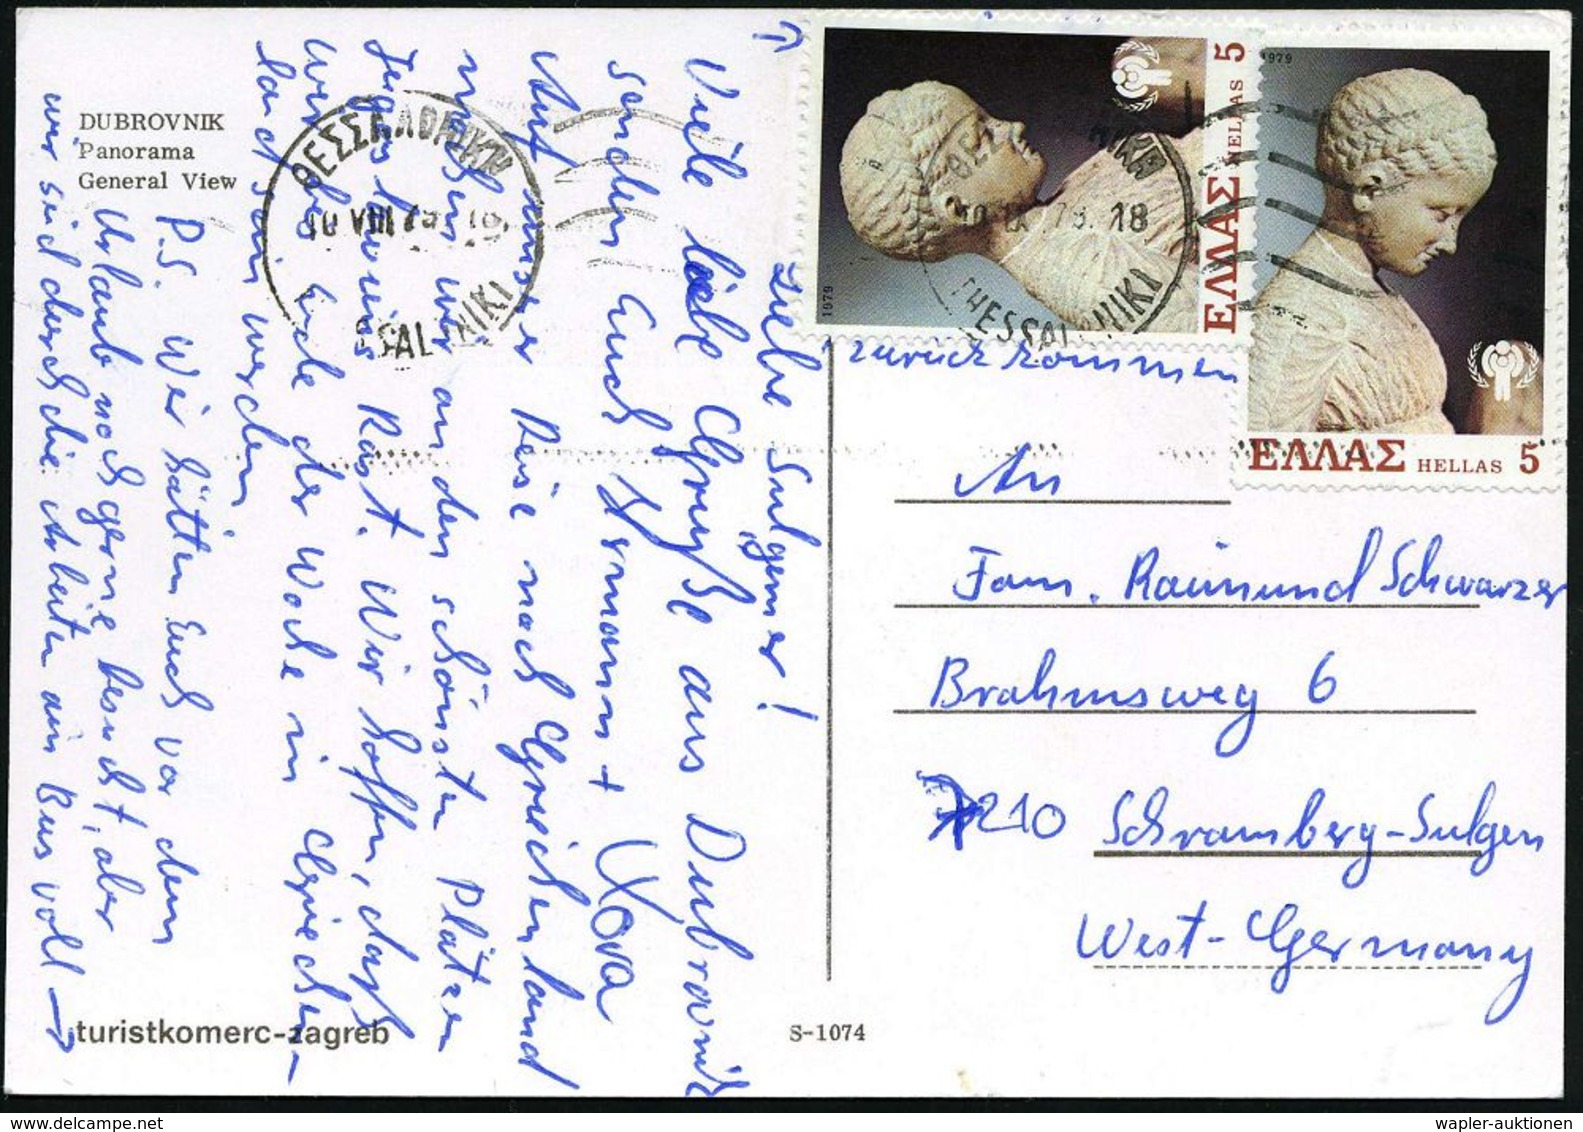 DUBROVNIK
Panorama
General View
Liebe Sulgemer!
Viele liebe Grüße aus Dubrovnik
senden Euch Hermann +
Auf unserer Reise nach Griechenland
machen wir an den schönsten Plätzen
Jugoslawiens Rast. Wir hoffen, daß
wir bis Ende der Woche in Griechen-
land sein werden
P.S. Wir hätten Euch vor dem
Urlaub noch gerne besucht, aber
wir sind durch die Arbeiten am Bus voll →
↑
zurückkommen
turistkomerc-zagreb
S-1074
ΘΕΣΣΑΛΟΝΙΚΗ
10 VIII 79 18
THESSALONIKI
ΘΕΣΣΑΛΟΝΙΚΗ
18
THESSALONIKI
1979
ΕΛΛΑΣ HELLAS 5
1979
ΕΛΛΑΣ HELLAS 5
An
Fam. Raimund Schwarzer
Brahmsweg 6
7210 Schramberg-Sulgen
West-Germany
wapler-auktionen